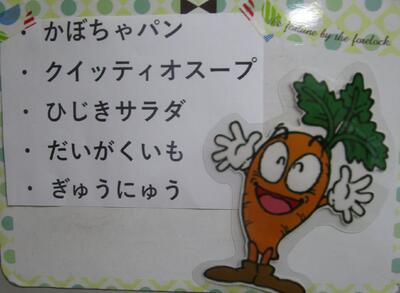 ・かぼちゃパン
・クイッティオスープ
・ひじきサラダ
・だいがくいも
・ぎゅうにゅう
fortune by the forelock.